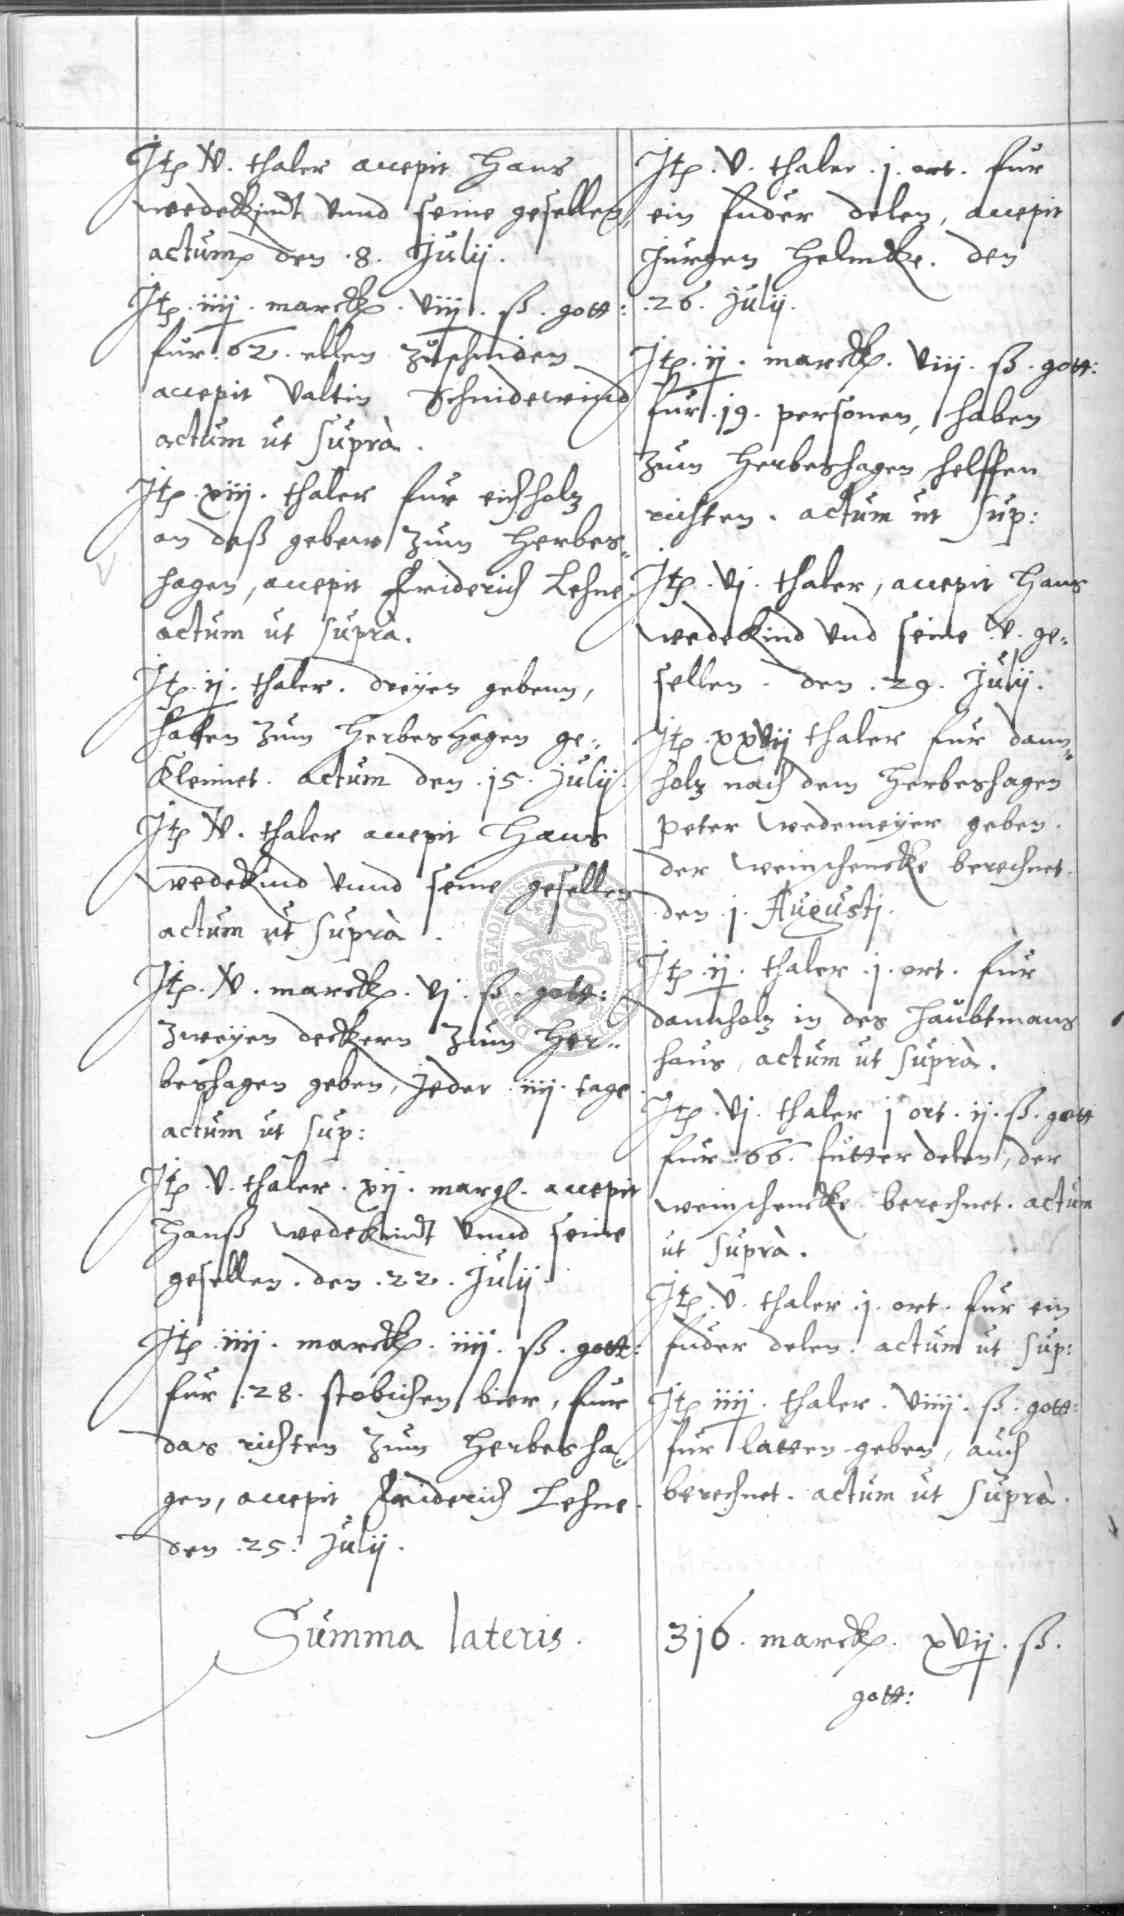 Itp. V. thaler accepit Hans
wedekindt vnnd seine gesellen,
actum den .8. Julij.
Itp. iiij. marck. viij. ß. gott:
fur .62. ellen zuschniden
accepit Valtin Schnidewind
actum ut suprà.
Itp. xiij. thaler fur eichholz
an daß gebew zum Herbes-
hagen, accepit Friderich Lehne
actum ut suprà.
Itp. ij. thaler. dreyen gebenn,
haben zum Herbeshagen ge-
kleimet. actum den .15. Julij.
Itp. V. thaler accepit Hans
wedekind vnnd seine gesellen
actum ut suprà.
Itp. V. marck. vj. ß. gott:
zweyen deckern zum Her-
beshagen geben, jeder iiij. tage
actum ut sup:
Itp. V. thaler. xij. margl. accepit
Hanß wedekindt vnnd seine
gesellen. den .22. Julij.
Itp. iiij. marck. iiij. ß. gott:
fur .28. stobichen bier, fur
das richten zum Herbesha-
gen, accepit Friderich Lehne.
den .25. Julij.
Itp. V. thaler .j. ort. fur
ein fuder delen, accepit
Jurgen Helmcke. den
.26. Julij.
Itp. ij. marck. viij. ß. gott:
fur .19. personen, haben
zum Herbeshagen helffen
richten. actum ut sup:
Itp. vj. thaler, accepit Hans
wedekind vnd seine V. ge-
sellen. den .29. Julij.
Itp. xxvij thaler fur dann-
holz nach dem Herbeshagen
Peter wedemeyer geben.
der weinschencke berechnet.
den .j. Augustj.
Itp. ij. thaler .j. ort. fur
dannholz in des Haubtmans
haus, actum ut suprà.
Itp. vj. thaler j ort. ij. ß. gott
fur .66. futter delen, der
weinschencke berechnet. actum
ut suprà.
Itp. V. thaler .j. ort. fur ein
fuder delen. actum ut sup:
Itp. iiij. thaler. viiij. ß. gott:
fur latten geben, auch
berechnet. actum ut suprà.
Summa lateris. 316. marck. xvij. ß.
gott: